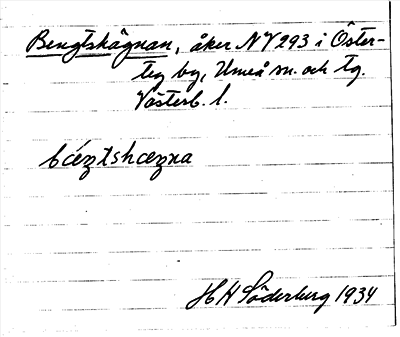 Bengtskägnan, åker NV 293 i Öster-
teg by, Umeå sn. och tg.
Västerb. l.
H H Söderberg 1934